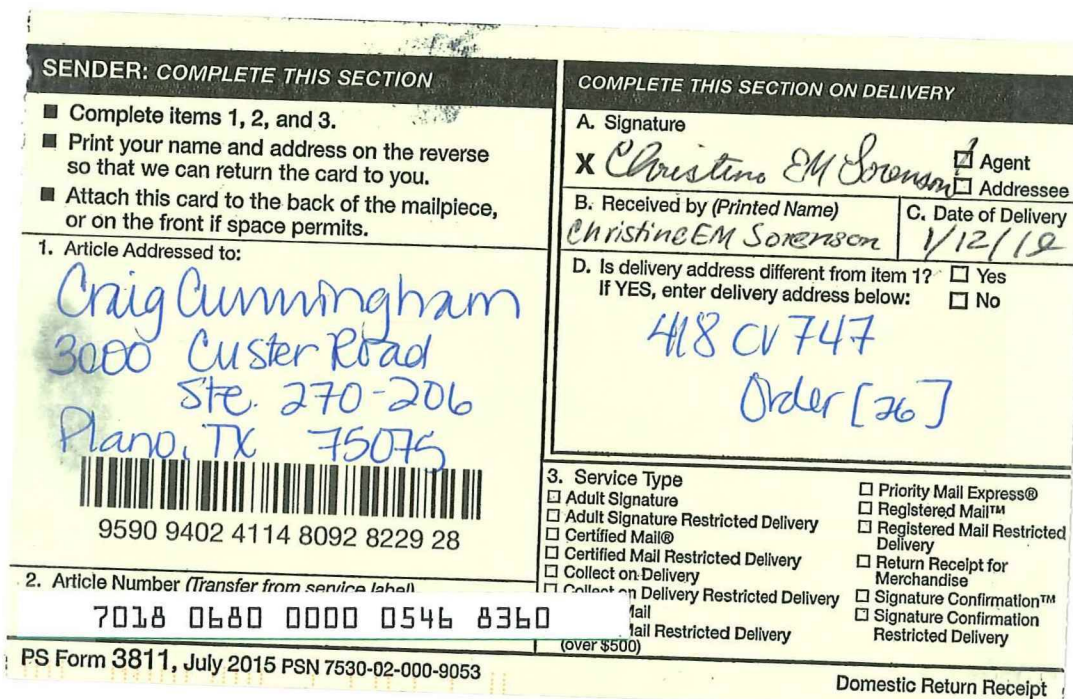 SENDER: COMPLETE THIS SECTION
■ Complete items 1, 2, and 3.
■ Print your name and address on the reverse
so that we can return the card to you.
■ Attach this card to the back of the mailpiece,
or on the front if space permits.
1. Article Addressed to:
Craig Cunningham
3000 Custer Road
Ste. 270-206
Plano, TX 75075
9590 9402 4114 8092 8229 28
2. Article Number (Transfer from service label)
7018 0680 0000 0546 8360
COMPLETE THIS SECTION ON DELIVERY
A. Signature
X Christine EM Sorenson
☐ Agent
☐ Addressee
B. Received by (Printed Name)
Christine EM Sorenson
C. Date of Delivery
1/12/19
D. Is delivery address different from item 1? ☐ Yes
If YES, enter delivery address below: ☐ No
418 CV 747
Order [26]
3. Service Type
☐ Adult Signature
☐ Adult Signature Restricted Delivery
☐ Certified Mail®
☐ Certified Mail Restricted Delivery
☐ Collect on Delivery
☐ Collect on Delivery Restricted Delivery
Mail
Mail Restricted Delivery
(over $500)
☐ Priority Mail Express®
☐ Registered Mail™
☐ Registered Mail Restricted
Delivery
☐ Return Receipt for
Merchandise
☐ Signature Confirmation™
☐ Signature Confirmation
Restricted Delivery
PS Form 3811, July 2015 PSN 7530-02-000-9053
Domestic Return Receipt